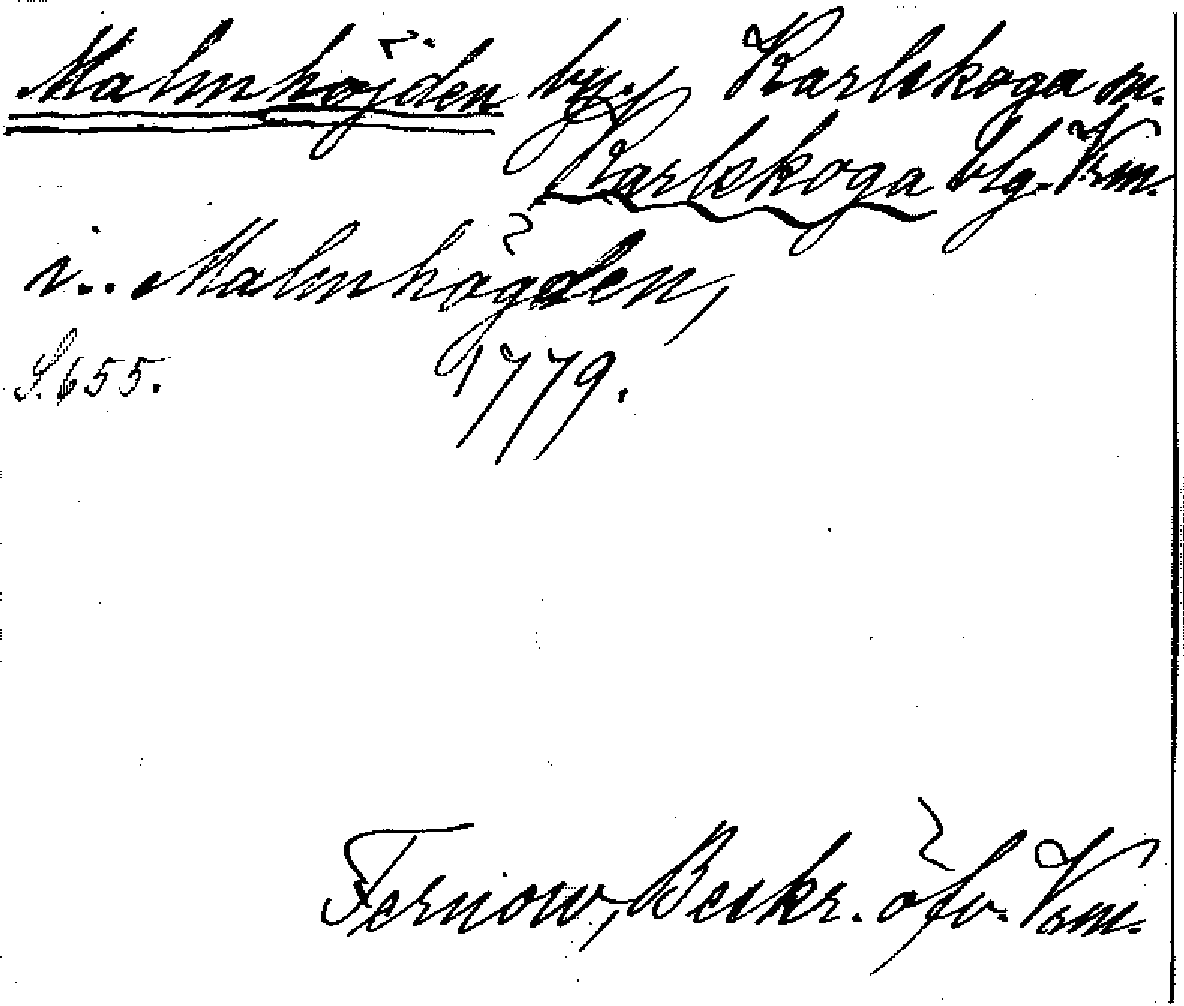 Malmhöjden by. Karlskoga sn.
Karlskoga blg. Vrm.
i.. Malmhögden,
S. 655. 1779.
Fernow, Beskr. öfv. Vrm.